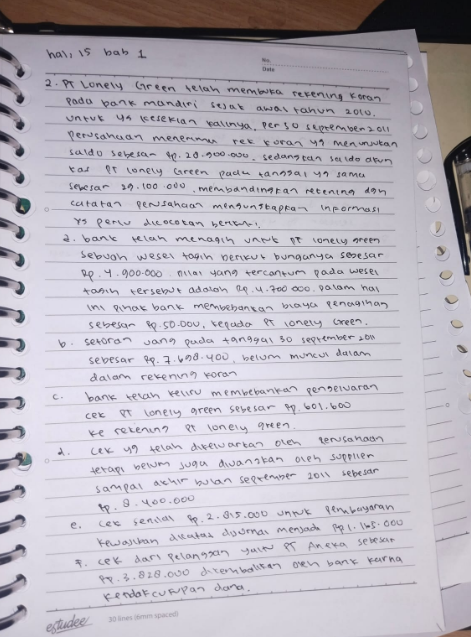 hal, 15 bab 1
No.
Date
2. PT Lonely Green telah membuka rekening koran
pada bank mandiri sejak awal tahun 2010.
untuk yg kesekian kalinya, per 30 september 2011
perusahaan menerima rek koran yg menunjukan
saldo sebesar Rp. 20.900.000, sedangkan saldo akun
kas PT lonely Green pada tanggal yg sama
sebesar 29.100.000. membandingkan rekening dgn
catatan perusahaan mengungkapkan informasi
yg perlu dicocokan berikut.
a. bank telah menagih untuk PT lonely green
sebuah wesel tagih berikut bunganya sebesar
Rp. 4.900.000. nilai yang tercantum pada wesel
tagih tersebut adalah Rp. 4.700.000. dalam hal
ini pihak bank membebankan biaya penagihan
sebesar Rp. 50.000, kepada PT lonely Green.
b. setoran uang pada tanggal 30 september 2011
sebesar Rp. 7.698.400, belum muncul dalam
dalam rekening koran
c. bank telah keliru membebankan pengeluaran
cek PT lonely green sebesar Rp. 601.600
ke rekening PT lonely green.
d. cek yg telah dikeluarkan oleh perusahaan
tetapi belum juga diuangkan oleh supplier
sampai akhir bulan september 2011 sebesar
Rp. 8.400.000
e. cek senilai Rp. 2.815.000 untuk pembayaran
kewajiban dicatat dijurnal menjadi Rp 1.145.000
f. cek dari pelanggan yaitu PT Aneka sebesar
Rp. 3.828.000 dikembalikan oleh bank karna
ketidakcukupan dana.
estudee 30 lines (6mm spaced)